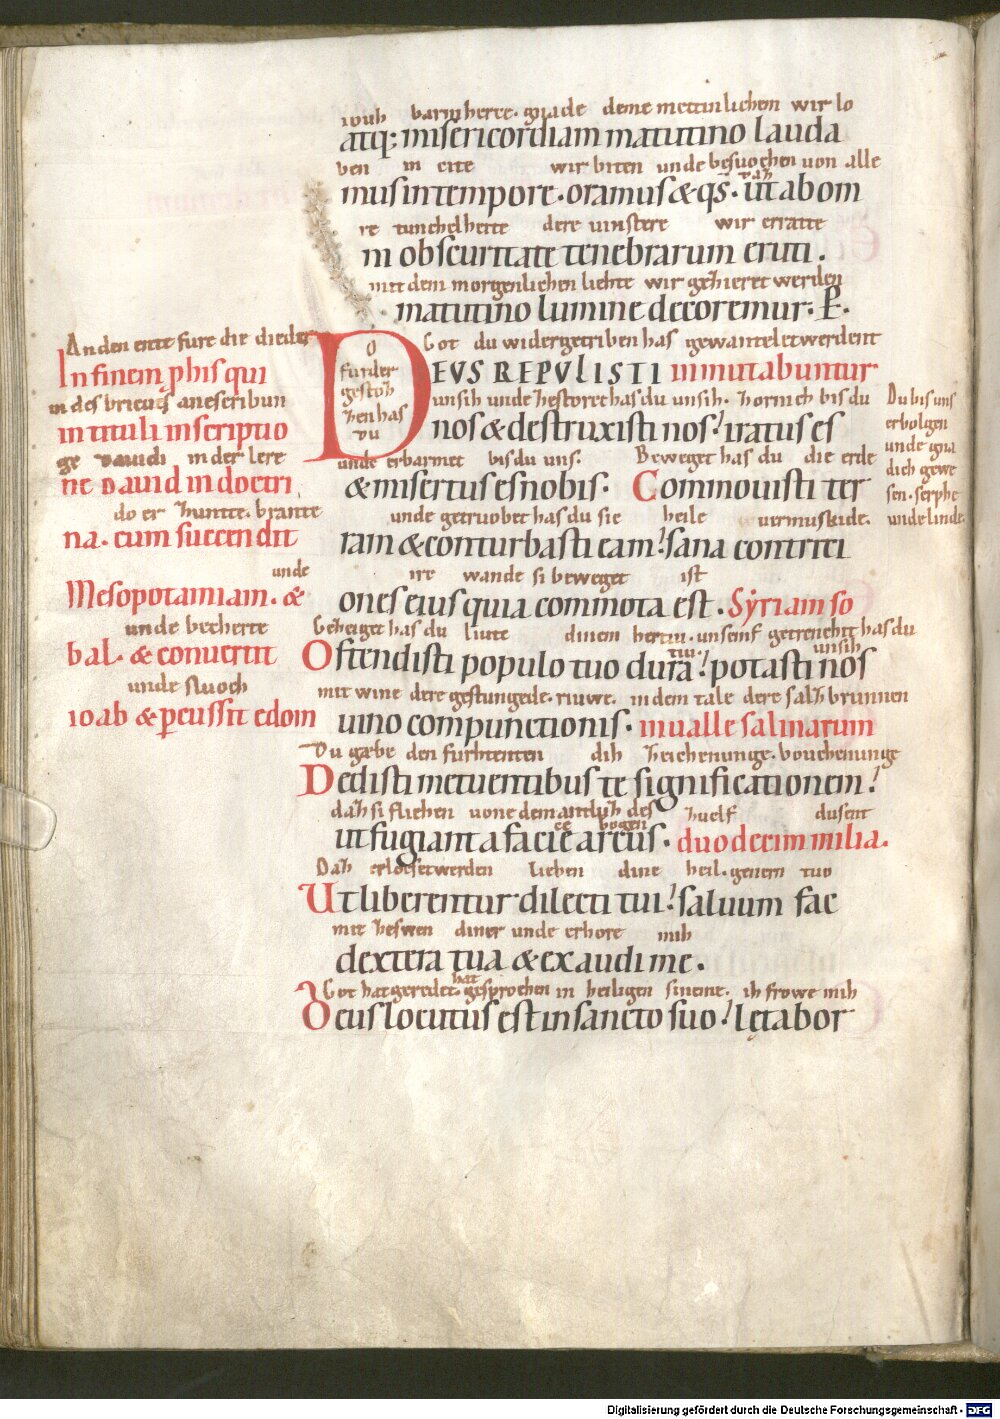 iouh barmherce. gnade deine mettinlichen wir lo
atq; misericordiam matutino lauda
ben in cite wir biten unde besuochen uon alle
dah
mus in tempore. oramus & qs. ut abom
re tunchelheite dere uinstere wir erratte
ni obscuritate tenebrarum eruti.
mit dem morgenlichen liehte wir gezieret werden
matutino lumine decoremur. P.
An den ente fure die dieder
In finem phis qui
in des brieues anescribun
in tituli inscriptio
ge Dauidi in der lere
ne Dauid in doctri
do er zunte. brante
na. cum succendit
unde
Mesopotamiam. &
unde becherte
bal. & conuertit
unde sluoch
ioab & pcussit edom
O
furder
gestoz
zen has
DU
Got du widergetriben has gewantelet werdent
DEUS REPULISTI inmutabuntur
unsih unde zestoret has du unsih. zornich bis du
nos & destruxisti nos! iratus es
Du bis uns
erbolgen
unde gna
dich gewe
sen. serphe
unde linde.
unde erbarmet bis du uns. Beweget has du die erde
& misertus es nobis. Commouisti ter
unde getruobet has du sie heile uermuskide.
ram & conturbasti eam! sana contriti
ire wande si beweget ist
ones eius quia commota est. Syriam so
Gezeiget has du liute dinem hertiu. unsemf getrenchit has du
tiu. unsih
Ostendisti populo tuo dura! potasti nos
mit wine dere gestungede. riuwe. in dem tale dere salzbrunnen
uino compunctionis. in ualle salinarum
Du gæbe den furhtenten dih zeichenunge. bouchenunge
Dedisti metuentibus te significationem!
dah si fliehen uone dem antluzh des zuelf dusent
ce bogen
ut fugiant a facie arcus. duodecim milia.
Dah erloset werden lieben dine heil. genem tuo
Ut liberentur dilecti tui! saluum fac
mit zeswen diner unde erhore mih
dextera tua & exaudi me.
hat
Got hat geredet. gesprochen in heiligen sineme. ih frowe mih
Deus locutus est in sancto suo! lętabor
Digitalisierung gefördert durch die Deutsche Forschungsgemeinschaft - DFG